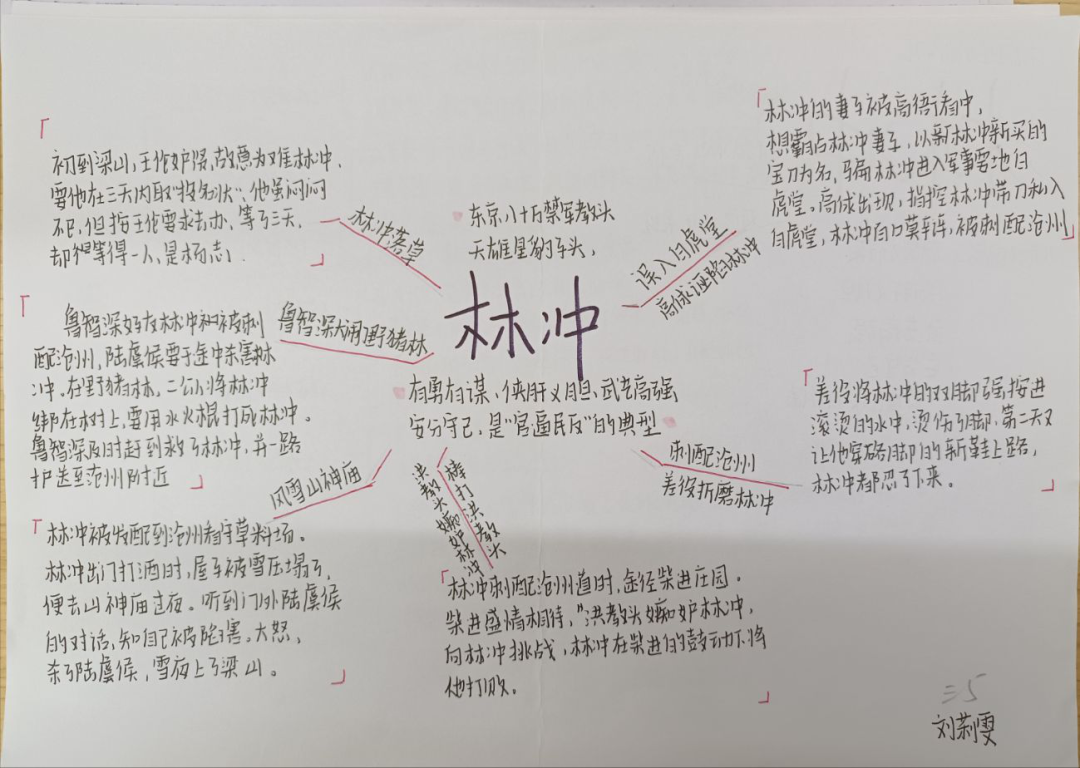 东京八十万禁军教头
天雄星豹子头，
林冲
有勇有谋、侠肝义胆、武艺高强
安分守己，是“官逼民反”的典型
误入白虎堂
高俅诬陷林冲
林冲的妻子被高衙看中，
想霸占林冲妻子，以新林冲新买的
宝刀为名，骗林冲进入军事要地白
虎堂，高俅出现，指控林冲带刀私入
白虎堂，林冲百口莫辩，被刺配沧州
刺配沧州
差役折磨林冲
差役将林冲的双脚强按进
滚烫的水中，烫伤了脚，第二天又
让他穿硌脚的新鞋上路，
林冲都忍了下来。
棒打洪教头
洪教头嫉妒林冲
林冲刺配沧州道时，途径柴进庄园。
柴进盛情相待，”洪教头嫉妒林冲，
向林冲挑战，林冲在柴进的鼓动下将
他打败。
风雪山神庙
林冲被发配到沧州看守草料场。
林冲出门打酒时，屋子被雪压塌了，
便去山神庙过夜。听到门外陆虞候
的对话，知自己被陷害。大怒，
杀了陆虞候，雪夜上了梁山。
鲁智深大闹野猪林
鲁智深好友林冲被刺
配沧州，陆虞候要于途中杀害林
冲。在野猪林，二公将林冲
绑在树上，要用水火棍打死林冲。
鲁智深及时赶到救了林冲，并一路
护送至沧州附近
林冲落草
初到梁山，王伦妒贤，故意为难林冲，
要他在三天内取“投名状”，他虽闷闷
不已，但按王伦要求去办，等了三天，
却仅等得一人，是杨志．
三5
刘荊雯